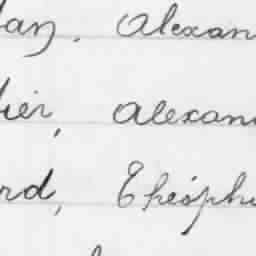 lan, Alexan
lier, Alexan
rd, Théoph